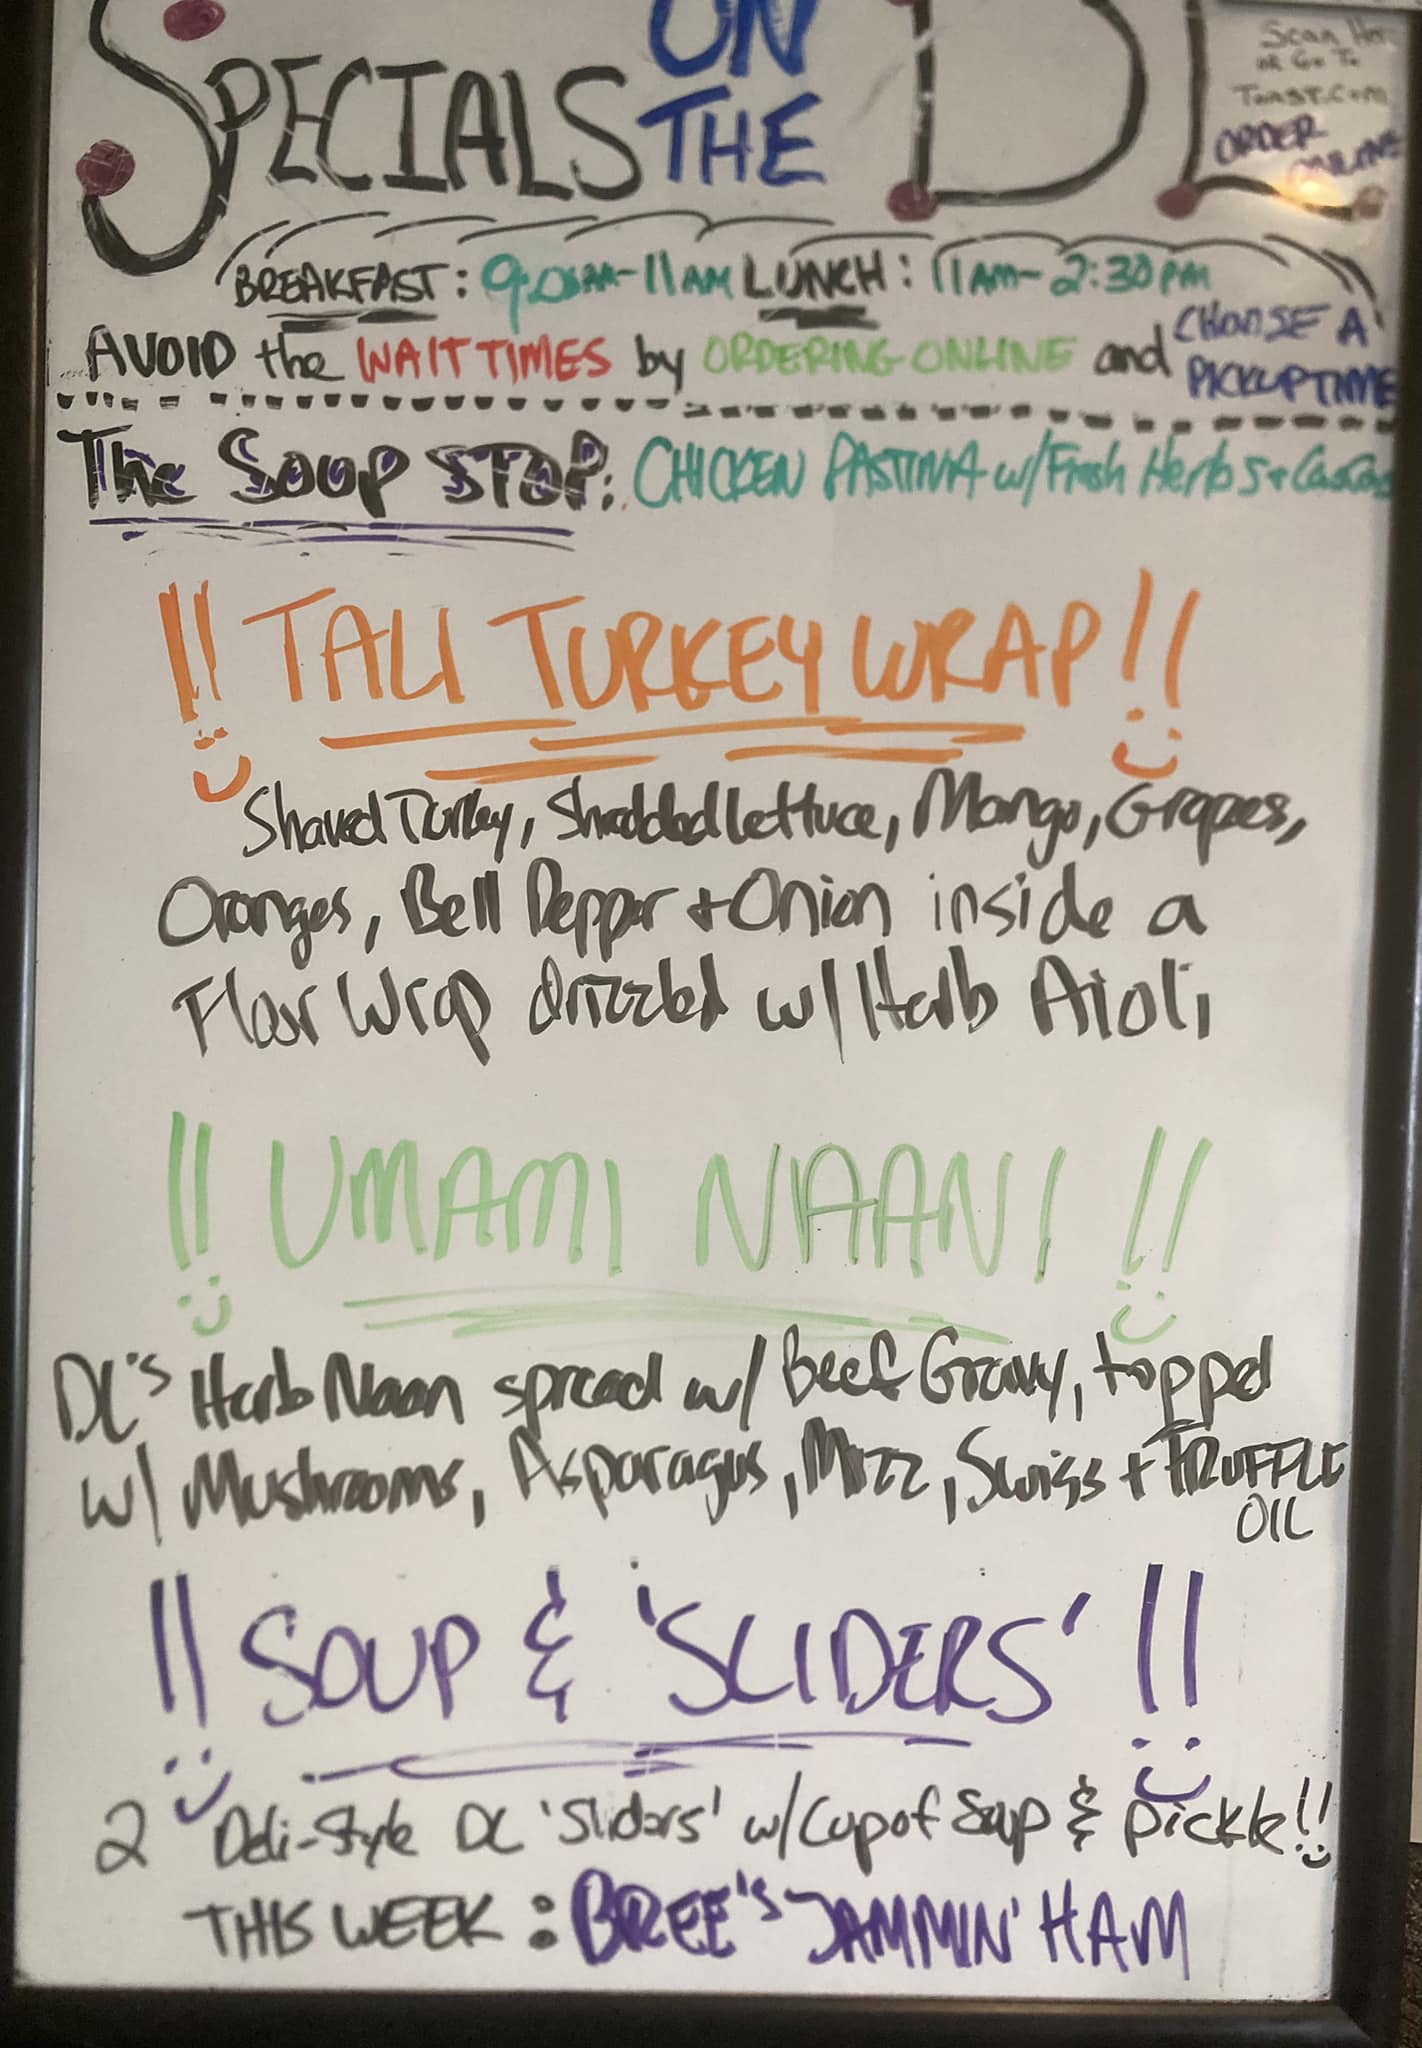 SPECIALS ON THE DL
Scan Here
or Go To
Toast.com
ORDER
ONLINE
BREAKFAST: 9:00AM-11AM LUNCH: 11AM-2:30PM
AVOID the WAIT TIMES by ORDERING ONLINE and CHOOSE A PICKUP TIME
The Soup STOP: CHICKEN PASTINA w/Fresh Herbs +
!! TALI TURKEY WRAP !!
Shaved Turkey, Shredded Lettuce, Mango, Grapes,
Oranges, Bell Pepper + Onion inside a
Flour Wrap drizzled w/ Herb Aioli
!! UMAMI NAAN! !!
DL's Herb Naan spread w/ Beef Gravy, topped
w/ Mushrooms, Asparagus, Mozz, Swiss + TRUFFLE
OIL
!! SOUP & 'SLIDERS' !!
2 Deli-Style DL 'Sliders' w/ Cup of Soup & pickle!!
THIS WEEK: BREE'S JAMMIN' HAM